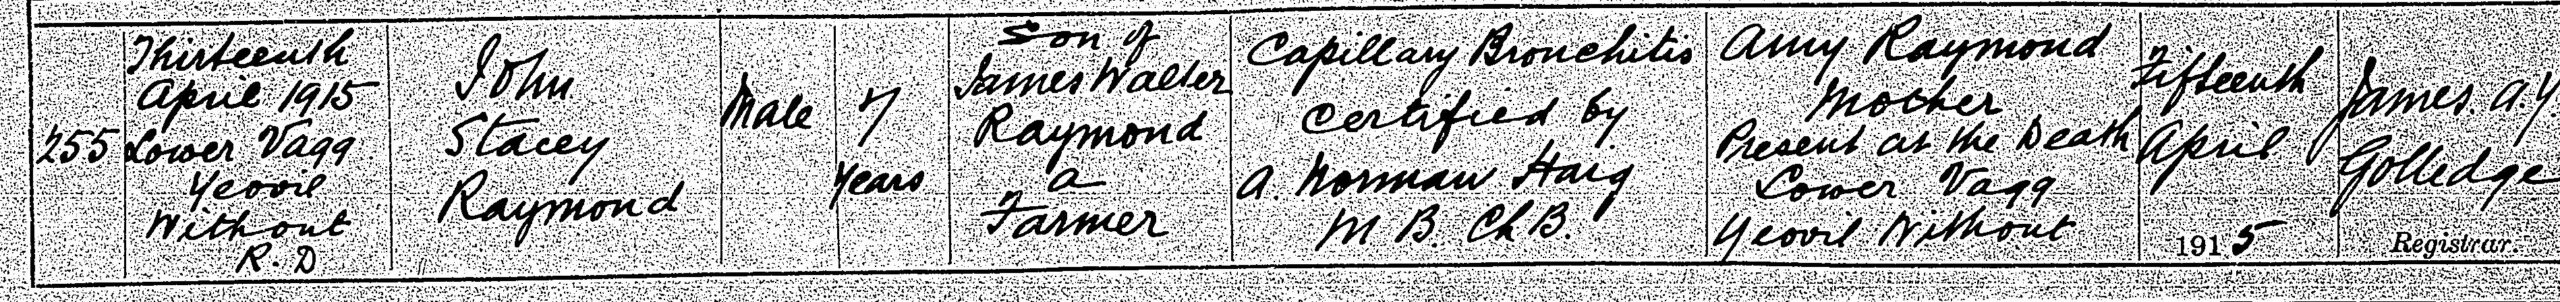 255
Thirteenth
April 1915
Lower Vagg
Yeovil
Without
R. D
John
Stacey
Raymond
Male
7
Years
Son of
James Walter
Raymond
a
Farmer
Capillary Bronchitis
Certified by
A. Norman Haig
M B. Ch B.
Amy Raymond
Mother
Present at the Death
Lower Vagg
Yeovil Without
Fifteenth
April
1915
James A.Y.
Golledge
Registrar.